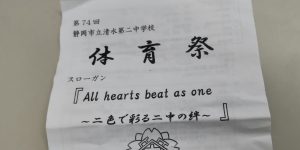 第74回
静岡市立清水第二中学校
体育祭
スローガン
『All hearts beat as one
～二色で彩る二中の絆～ 』